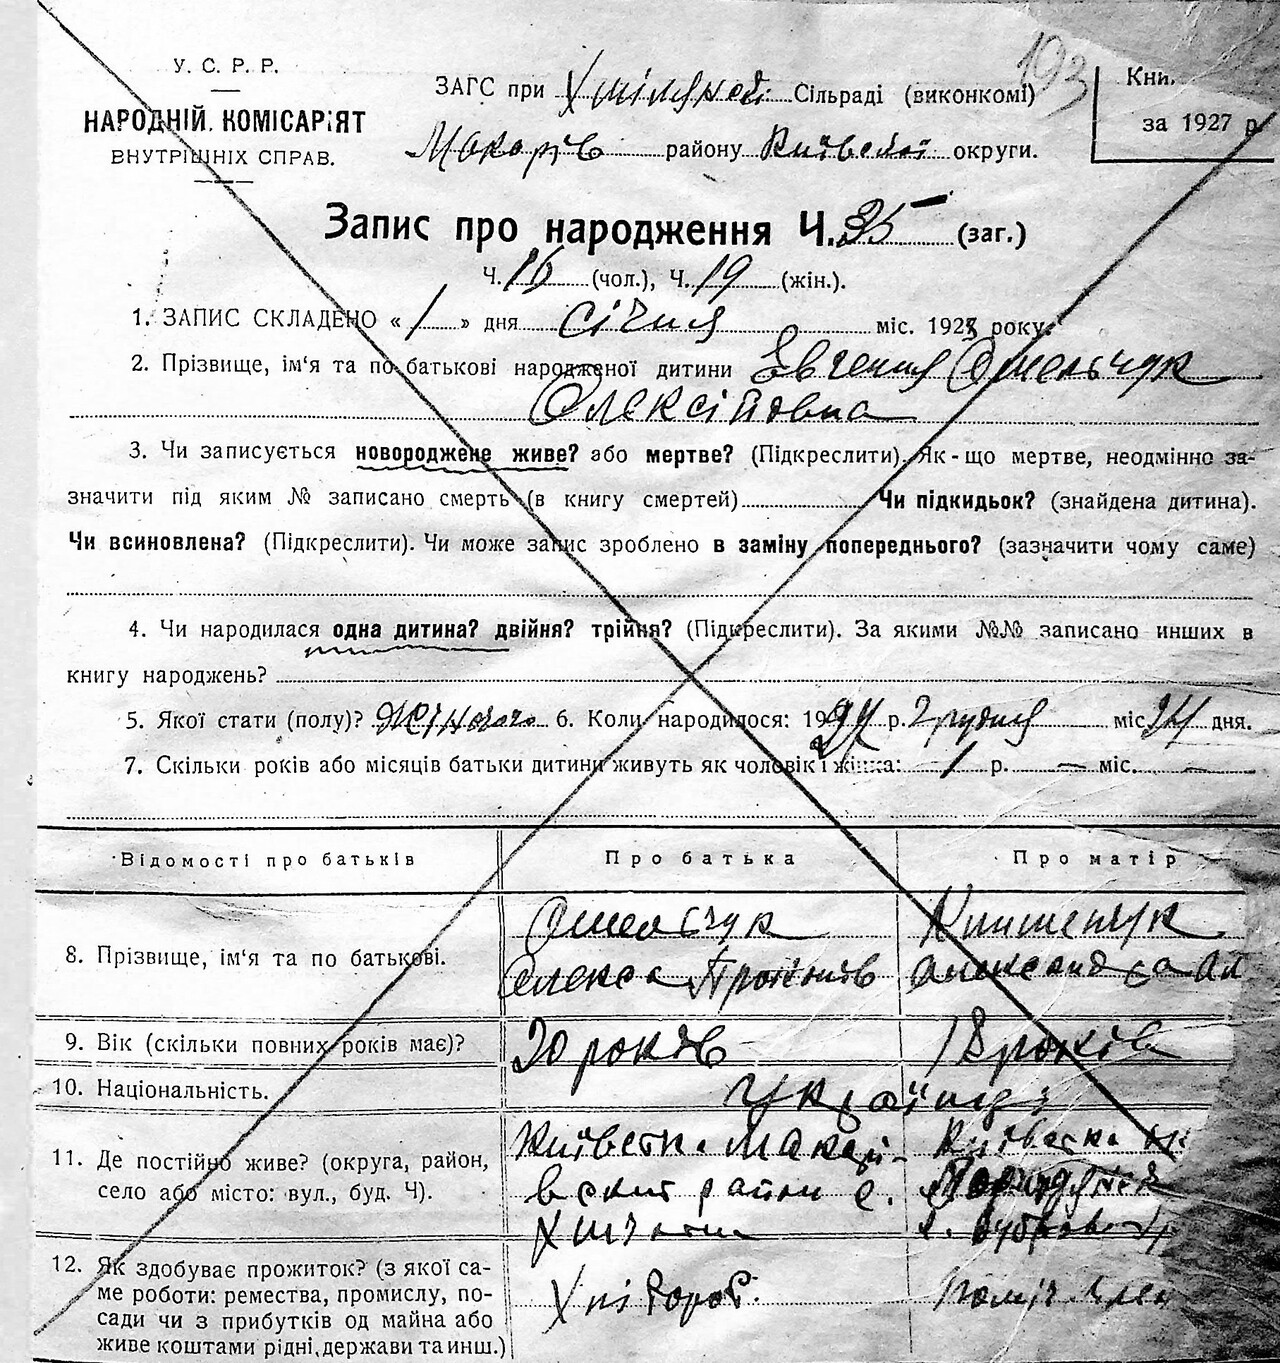 193
У. С. Р. Р.
НАРОДНІЙ КОМІСАРІЯТ
ВНУТРІШНІХ СПРАВ.
ЗАГС при Сільраді (виконкомі)
Макарів району Київської округи.
Кни.
за 1927 р.
Запис про народження Ч. 35 (заг.)
Ч. 16 (чол.), Ч. 19 (жін.).
1. ЗАПИС СКЛАДЕНО « 1 » дня січня міс. 192 року.
2. Прізвище, ім'я та по батькові народженої дитини Євгенія Омельчук
Олексіївна
3. Чи записується новороджене живе? або мертве? (Підкреслити). Як-що мертве, неодмінно за-
значити під яким № записано смерть (в книгу смертей) Чи підкидьок? (знайдена дитина).
Чи всиновлена? (Підкреслити). Чи може запис зроблено в заміну попереднього? (зазначити чому саме)
4. Чи народилася одна дитина? двійня? трійня? (Підкреслити). За якими №№ записано инших в
книгу народжень?
5. Якої стати (полу)? жіночого 6. Коли народилося: 1927 р. грудня міс. 24 дня.
7. Скільки років або місяців батьки дитини живуть як чоловік і жінка: 1 р. — міс. —
Відомості про батьків
Про батька
Про матір
8. Прізвище, ім'я та по батькові.
Омельчук
Олекса
Александра
9. Вік (скільки повних років має)?
20 років
18 років
10. Національність.
Українці
11. Де постійно живе? (округа, район,
село або місто: вул., буд. Ч).
Київська Макарі-
вский район с.
Київська
12. Як здобуває прожиток? (з якої са-
ме роботи: ремества, промислу, по-
сади чи з прибутків од майна або
живе коштами рідні, держави та инш.)
Хлібороб.